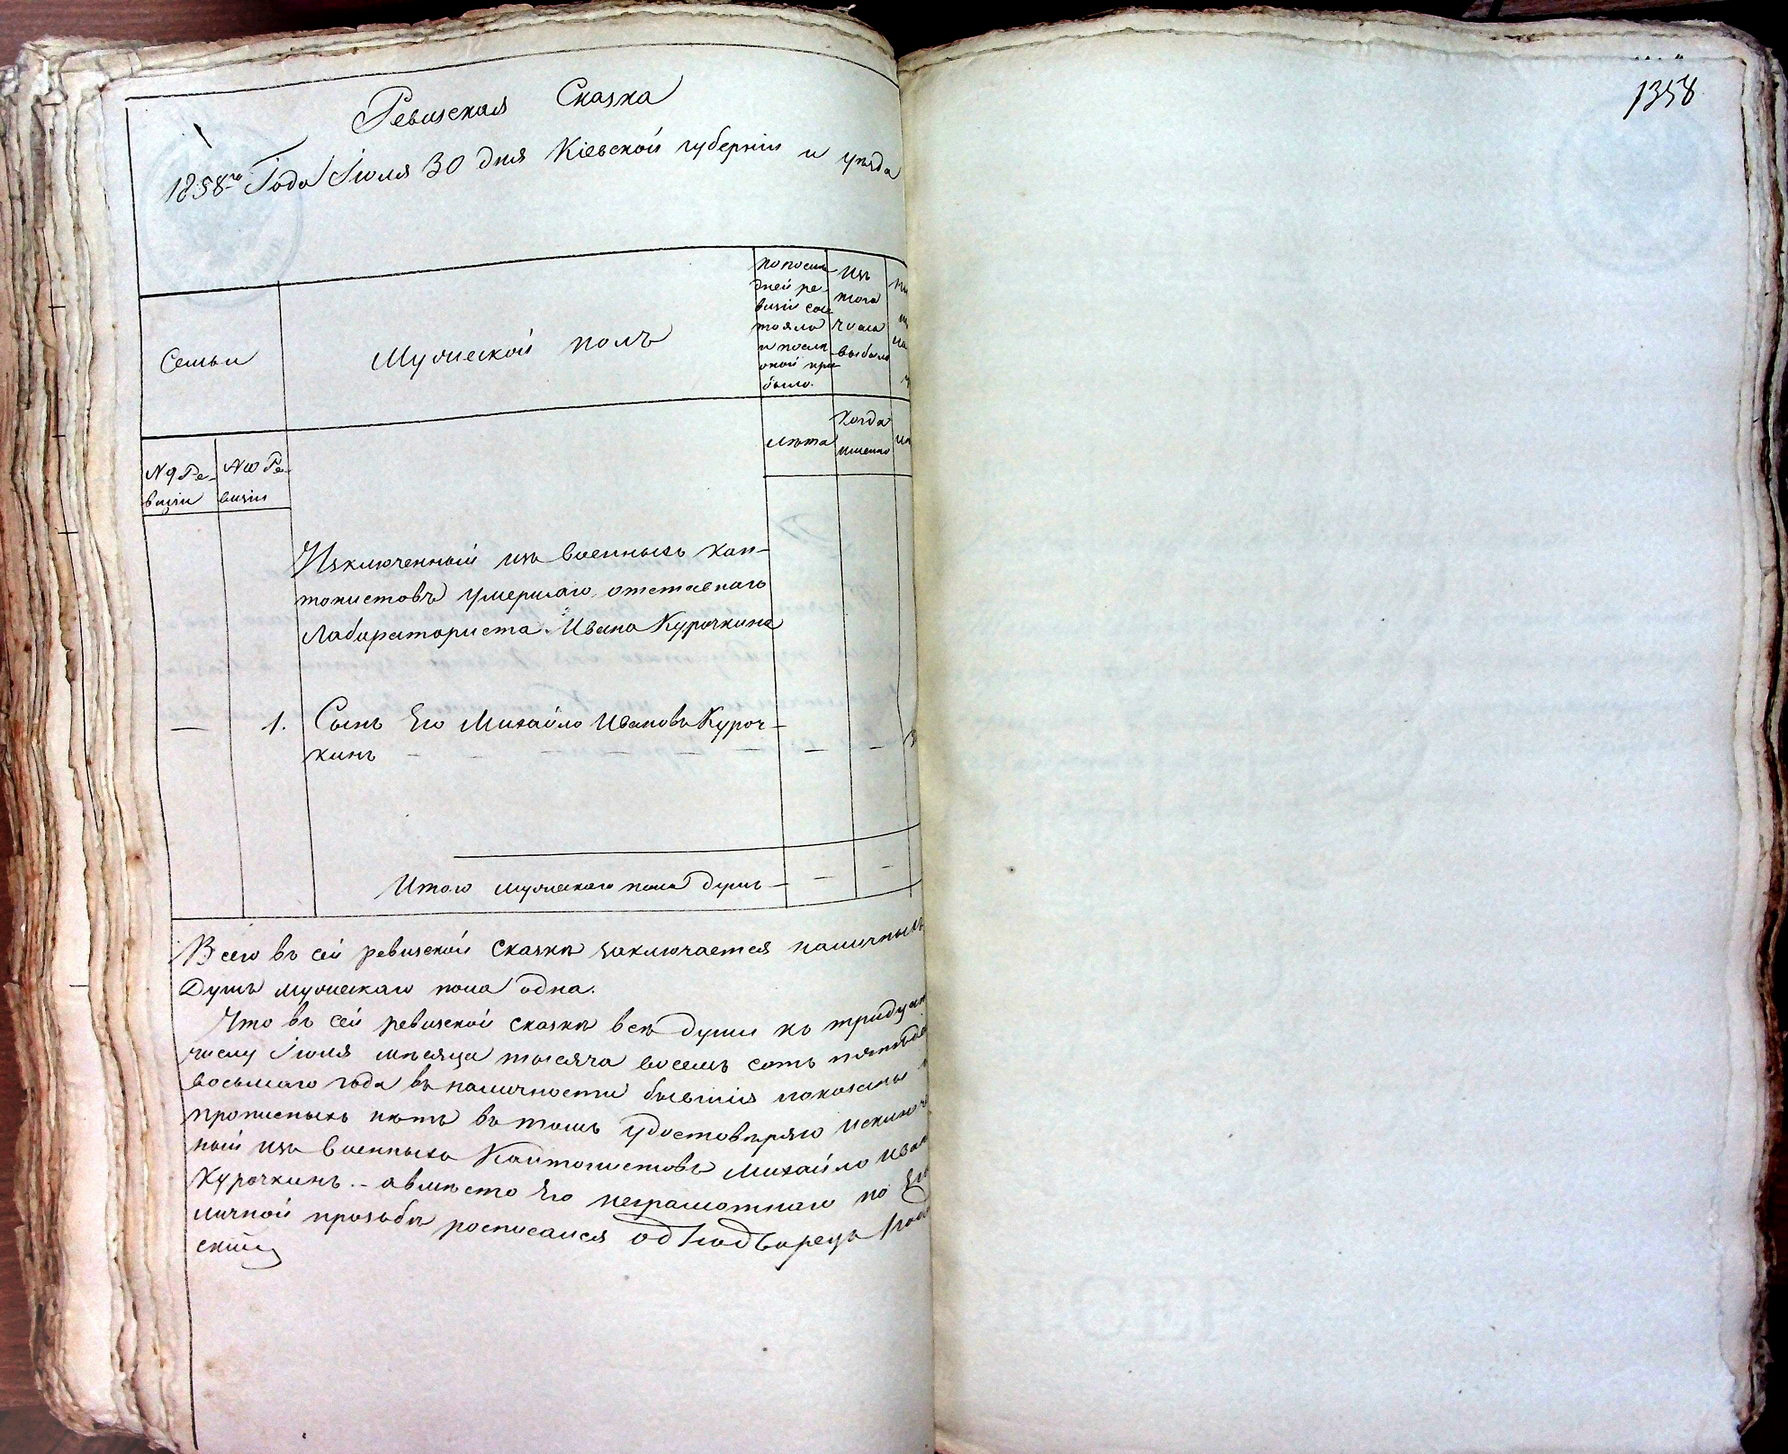 1358
Ревизская Сказка
1858го Года Іюля 30 дня Кіевской губерніи и уѣзда
Семьи
Мужеской полъ
По послѣ-
дней ре-
визіи сос-
тояло
и послѣ
оной при-
было.
Изъ
того
числа
выбыло
№ 9 Ре-
визіи
№ 10 Ре-
визіи
Лѣта
Когда
именно
Изключенный изъ военныхъ кан-
тонистовъ умершаго отставнаго
Лабираториста Ивана Курочкина
— 1. Сынъ Его Михайло Ивановъ Куроч-
кинъ — — — — — — —
Итого мужескаго пола душъ — — —
Всего въ сей ревизской сказкѣ заключается наличныхъ
Душъ мужескаго пола одна.
Что въ сей ревизской сказкѣ всѣ души къ
числу Іюля мѣсяца тысяча восемь сотъ
восьмаго года въ наличности бывшія показаны
прописныхъ нѣтъ въ томъ удостовѣряю
ный изъ военныхъ Кантонистовъ Михайло
Курочкинъ. – а вмѣсто Его неграмотнаго по Его
личной прозьбѣ росписался однодворецъ
скій